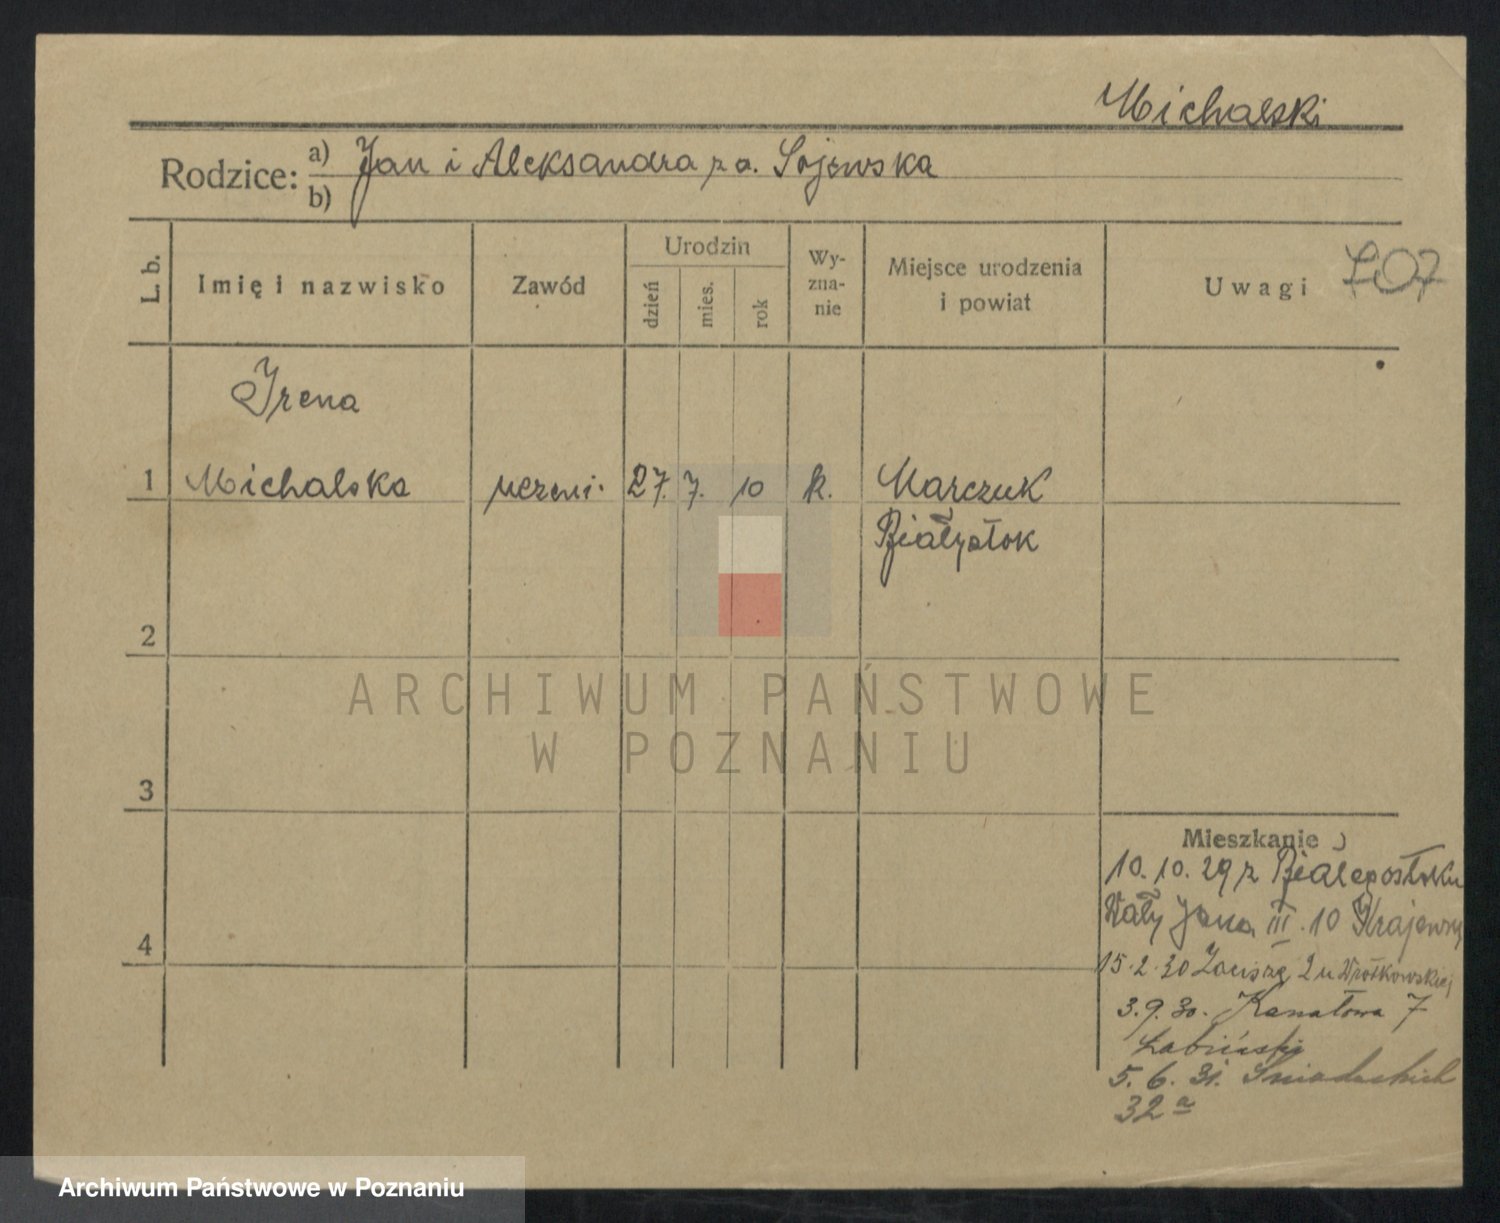 Michalski
Rodzice: a) Jan i Aleksandra z d. Sojewska
b)
L. b. Imię i nazwisko Zawód Urodzin dzień mies. rok Wy-zna-nie Miejsce urodzenia i powiat Uwagi
Irena
1 Michalska uczeni. 27. 7. 10 k. Marczuk
Białystok
2
ARCHIWUM PAŃSTWOWE
W POZNANIU
3
Mieszkanie
10.10.29 z Białegostoku
4 Wały Jana III. 10 Krajewsy
15.2.30 Zacisze 2 u Wrótkowskiej
3.9.30. Kanałowa 7
Łabiński
5.6.31. Śniadeckich
32a
Archiwum Państwowe w Poznaniu